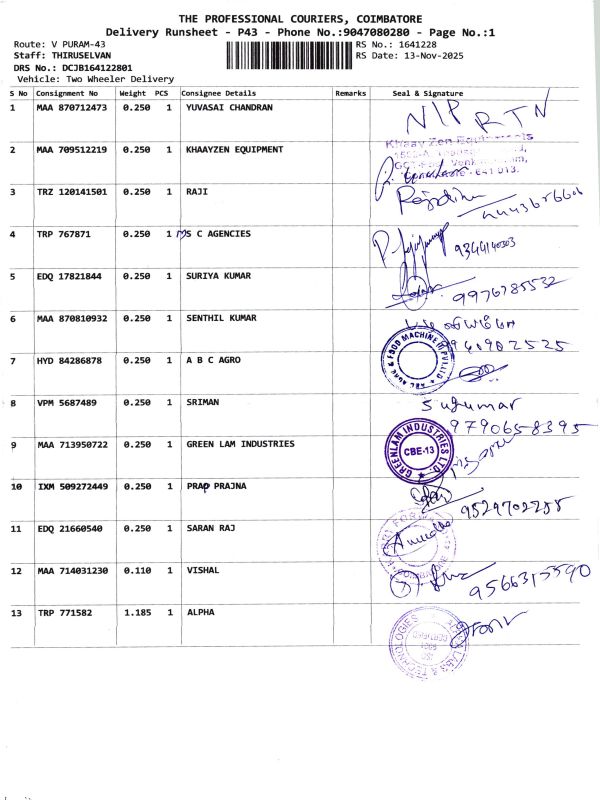 THE PROFESSIONAL COURIERS, COIMBATORE
Delivery Runsheet - P43 - Phone No.:9047080280 - Page No.:1
Route: V PURAM-43 RS No.: 1641228
Staff: THIRUSELVAN RS Date: 13-Nov-2025
DRS No.: DCJB164122801
Vehicle: Two Wheeler Delivery
S No Consignment No Weight PCS Consignee Details Remarks Seal & Signature
1 MAA 870712473 0.250 1 YUVASAI CHANDRAN N/P RTN
2 MAA 709512219 0.250 1 KHAAYZEN EQUIPMENT Khaay Zen Equipments
3 TRZ 120141501 0.250 1 RAJI
4 TRP 767871 0.250 1 MS C AGENCIES
5 EDQ 17821844 0.250 1 SURIYA KUMAR 9976785532
6 MAA 870810932 0.250 1 SENTHIL KUMAR
7 HYD 84286878 0.250 1 A B C AGRO
8 VPM 5687489 0.250 1 SRIMAN Sugumar
9790658395
9 MAA 713950722 0.250 1 GREEN LAM INDUSTRIES GREENLAM INDUSTRIES LTD. CBE-13
10 IXM 509272449 0.250 1 PRAP PRAJNA
11 EDQ 21660540 0.250 1 SARAN RAJ
12 MAA 714031230 0.110 1 VISHAL
13 TRP 771582 1.185 1 ALPHA